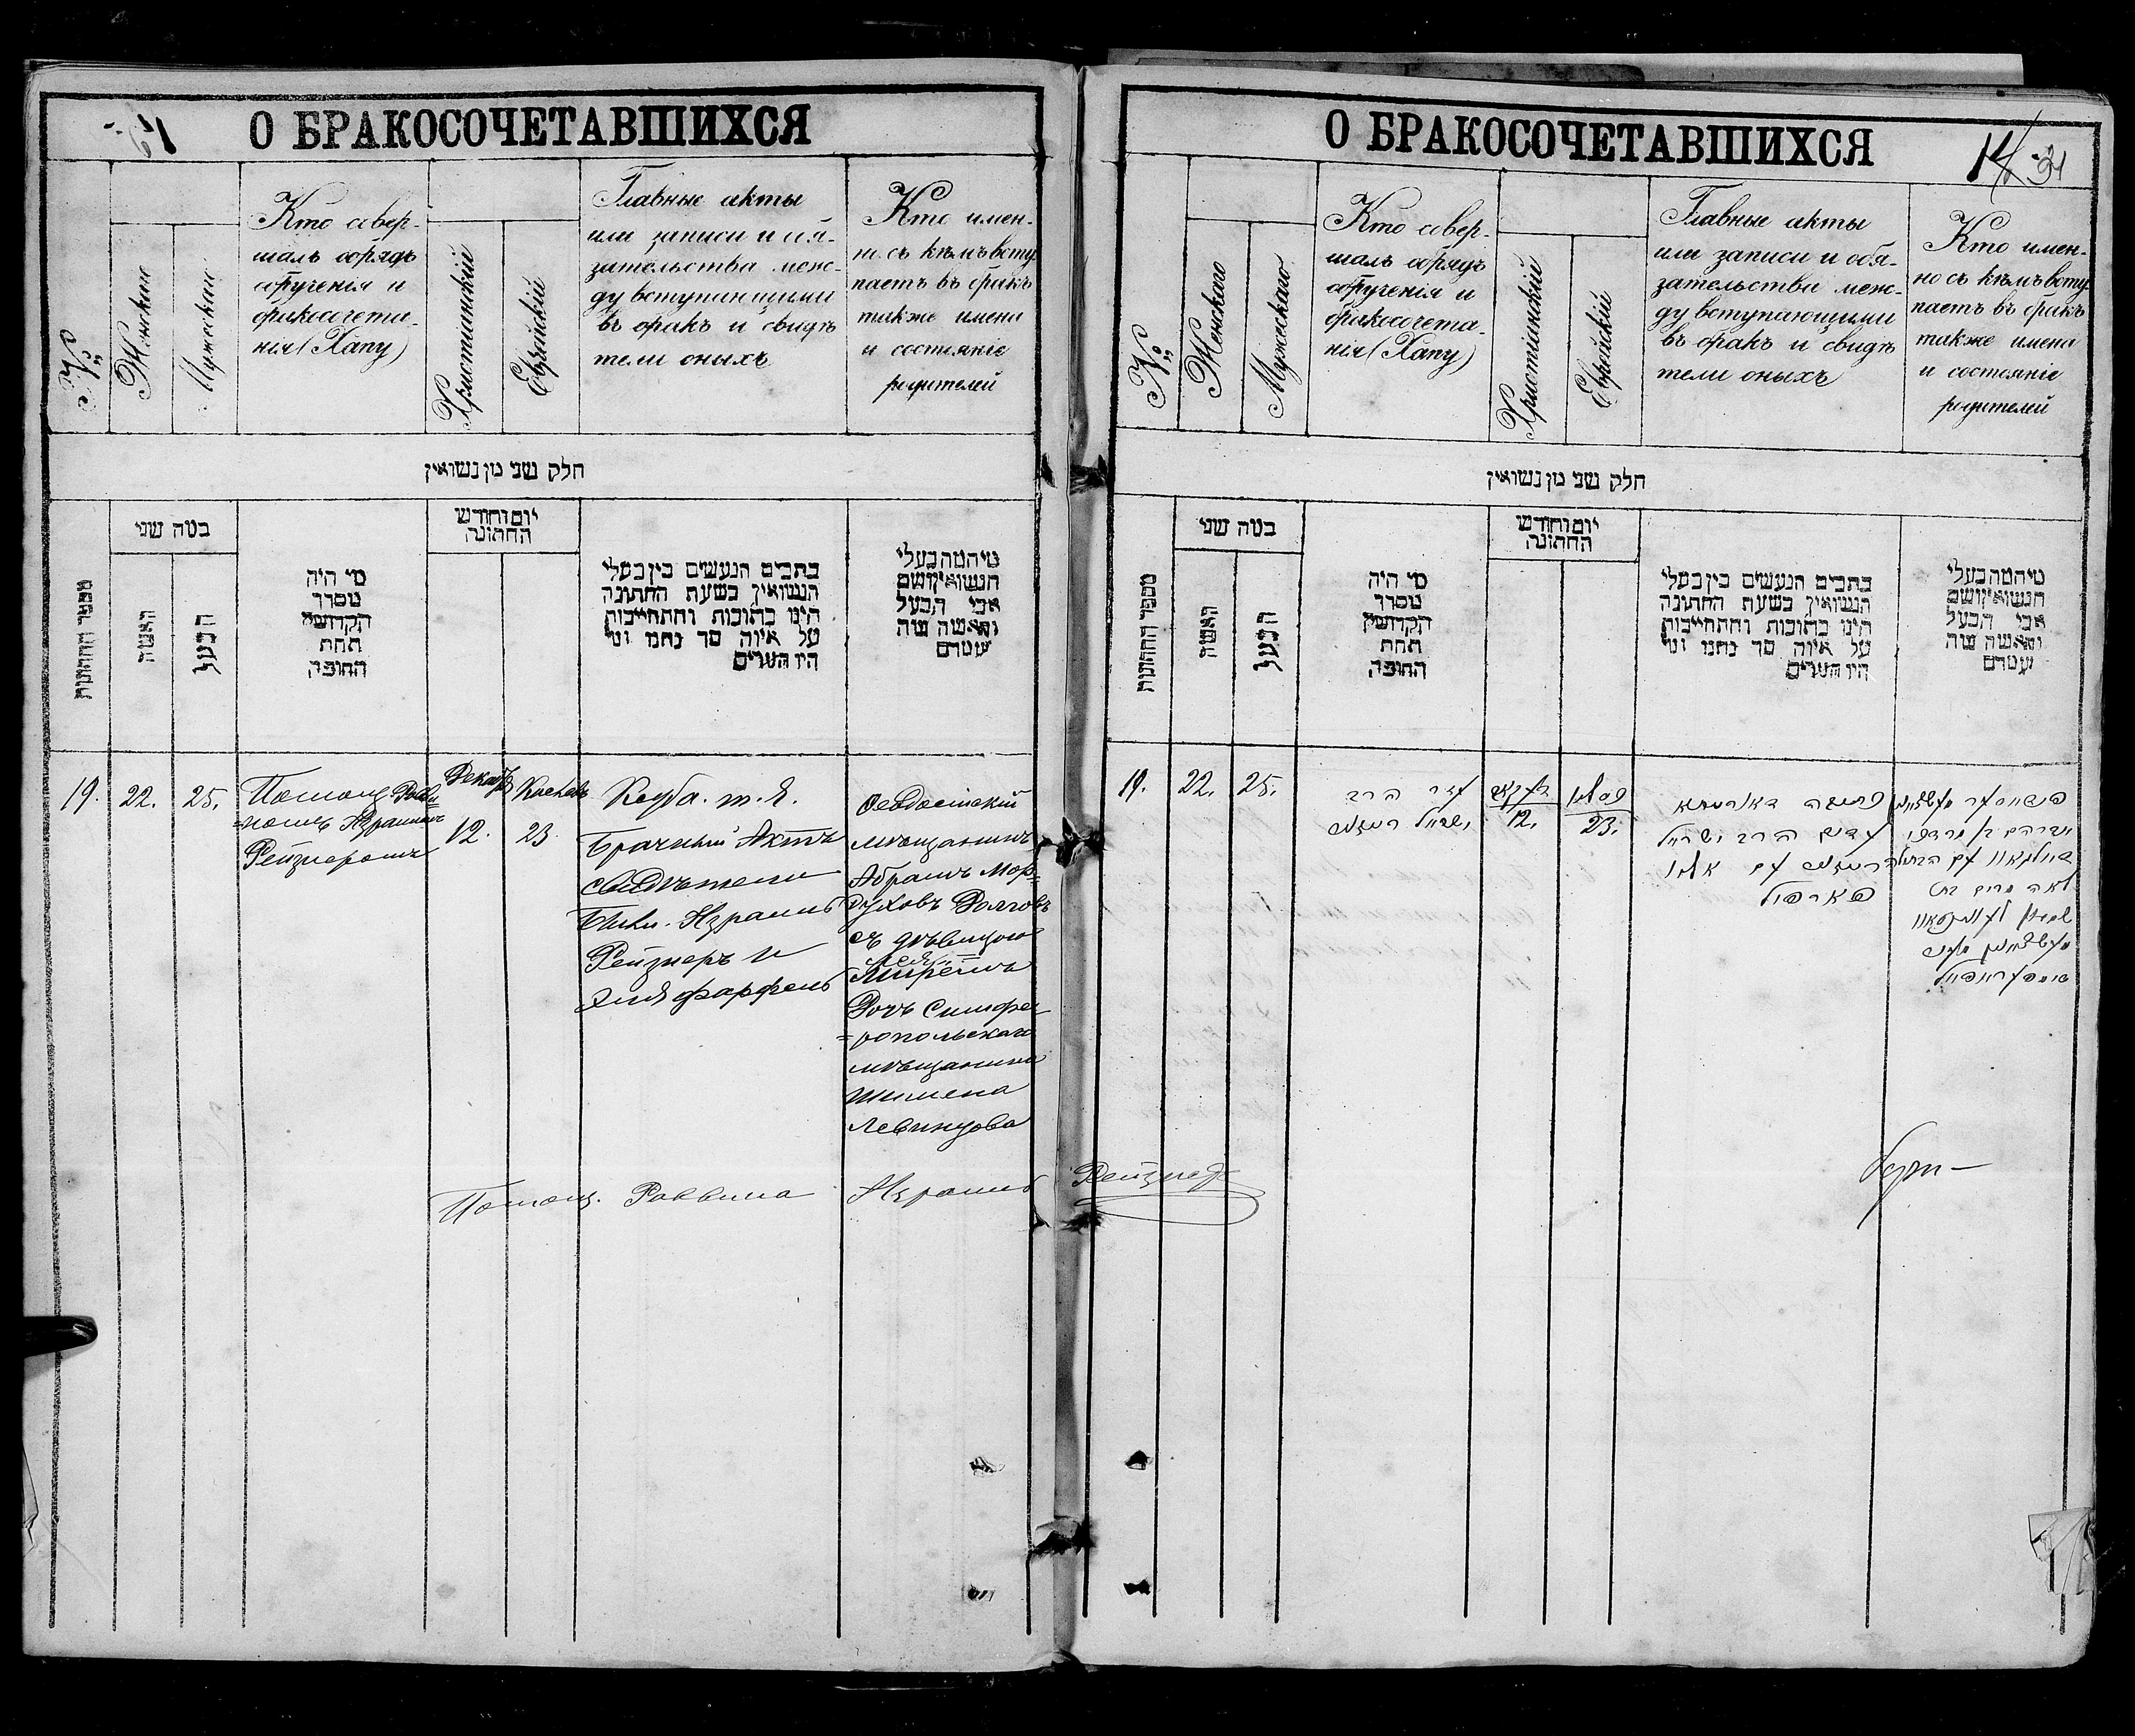 О БРАКОСОЧЕТАВШИХСЯ
№
Женскаго
Мужскаго
Кто совер-
шалъ обрядъ
обрученія и
бракосочета-
нія (Хапу)
Христіанскій
Еврейскій
Главные акты
или записи и обя-
зательства меж-
ду вступающими
въ бракъ и свидѣ
тели оныхъ
Кто имен-
но съ кѣмъ всту
паетъ въ бракъ
также имена
и состояніе
родителей
חלק שני מן נשואין
מספר החתונות
כמה שני
האשה
הבעל
מי היה
מסדר
הקדושין
תחת
החופה
יום וחודש
החתונה
כתבים הנעשים בין בעלי
הנשואין בשעת החתונה
היינו כתובות והתחייבות
על איזה סך נתנו ומי
היו העדים
מיהמה בעלי
הנשואין ושם
אבי הבעל
והאשה מה
שמם
19.
22.
25.
Помощ. Равви
=номъ Израилемъ
Рейзнеромъ
Декабр
12.
23.
Ксуба. т. е.
Брачный Актъ
свидѣтели
Израиль
Рейзнеръ и
Эля Фарфель
Ѳеодосійскій
мѣщанинъ
Абрамъ Мор=
духовъ Долговъ
съ дѣвицою
Леей
Диръ Симфе
=ропольскаго
мѣщанина
Шимена
Левинцова
Помощ. Раввина Израиль Рейзнеръ
О БРАКОСОЧЕТАВШИХСЯ
14
31
№
Женскаго
Мужскаго
Кто совер-
шалъ обрядъ
обрученія и
бракосочета-
нія (Хапу)
Христіанскій
Еврейскій
Главные акты
или записи и обя-
зательства меж-
ду вступающими
въ бракъ и свидѣ
тели оныхъ
Кто имен-
но съ кѣмъ всту
паетъ въ бракъ
также имена
и состояніе
родителей
חלק שני מן נשואין
מספר החתונות
כמה שני
האשה
הבעל
מי היה
מסדר
הקדושין
תחת
החופה
יום וחודש
החתונה
כתבים הנעשים בין בעלי
הנשואין בשעת החתונה
היינו כתובות והתחייבות
על איזה סך נתנו ומי
היו העדים
מיהמה בעלי
הנשואין ושם
אבי הבעל
והאשה מה
שמם
19.
22.
25.
הרב
ישראל
12.
כסלו
23.
עדים הרב ישראל
אברהם בן מרדכי
לאה מרים בת